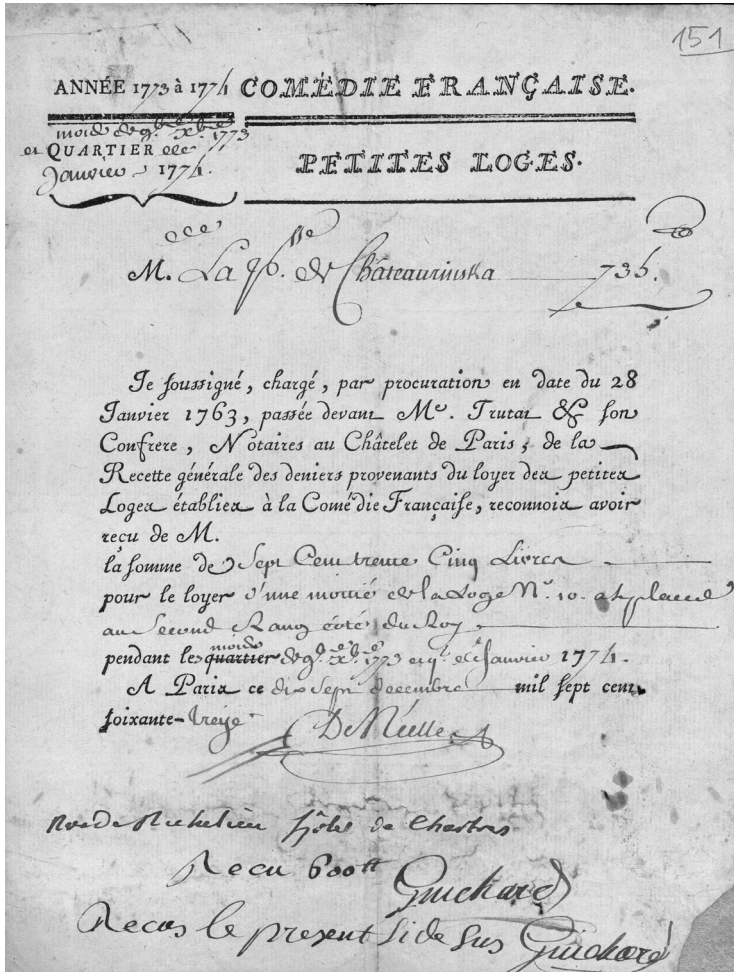 151
ANNÉE 1773 à 1774 COMÉDIE FRANÇAISE.
mois de 9bre Xbre 1773
et QUARTIER de
Janvier 1774.
PETITES LOGES.
M. La de Châteaurinska 735.
Je soussigné, chargé, par procuration en date du 28
Janvier 1763, passée devant Me. Trutat & son
Confrere, Notaires au Châtelet de Paris, de la
Recette générale des deniers provenants du loyer des petites
Loges établies à la Comédie Française, reconnois avoir
reçu de M.
la somme de Sept Cent trente Cinq Livres
pour le loyer d'une moitié de la Loge N°. 10. a places
au Second Rang côté du Roy
mois
pendant le quartier de 9bre Xbre 1773 et de Janvier 1774.
A Paris ce dix Sept decembre mil sept cent
soixante-treize
De Néelle
Rue de Richelieu hôtel de Chartres
Recu 600tt
Guichard
Recus le present Si de Sus Guichard